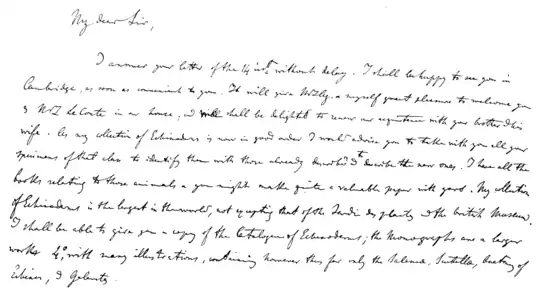 My dear Sir,
I answer your letter of the 14 inst without delay. I shall be happy to see you in
Cambridge, as soon as convenient to you. It will give Mrs Ag. & myself great pleasure to welcome you
& Mrs LeConte in our house, & shall be delighted to renew our acquaintance with your brother & his
wife. As my collection of Echinoderms is now in good order I would advise you to take with you all your
specimens of that class to identify them with those already described & to describe the new ones. I have all the
books relating to those animals & you might make quite a valuable paper with yours. My collection
of Echinoderms is the largest in the world, not excepting that of the Jardin des plantes & the british Museum.
I shall be able to give you a copy of the Catalogue of Echinoderms; the Monographs are a larger
works 4o, with many illustrations, containing however thus far only the Salenia, Scutellae, Anatomy of
Echinus, & Galerites.